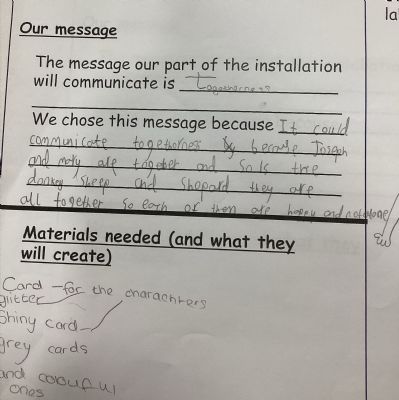 Our message
The message our part of the installation
will communicate is Togetherness
We chose this message because It could
communicate togetherness by because Joseph
and mary are together and so is the
donkey sheep and shepard they are
all together so each of them are happy and not alone
Materials needed (and what they
will create)
Card - for the charachters
glitter
Shiny card
grey cards
and colouful
ones
la